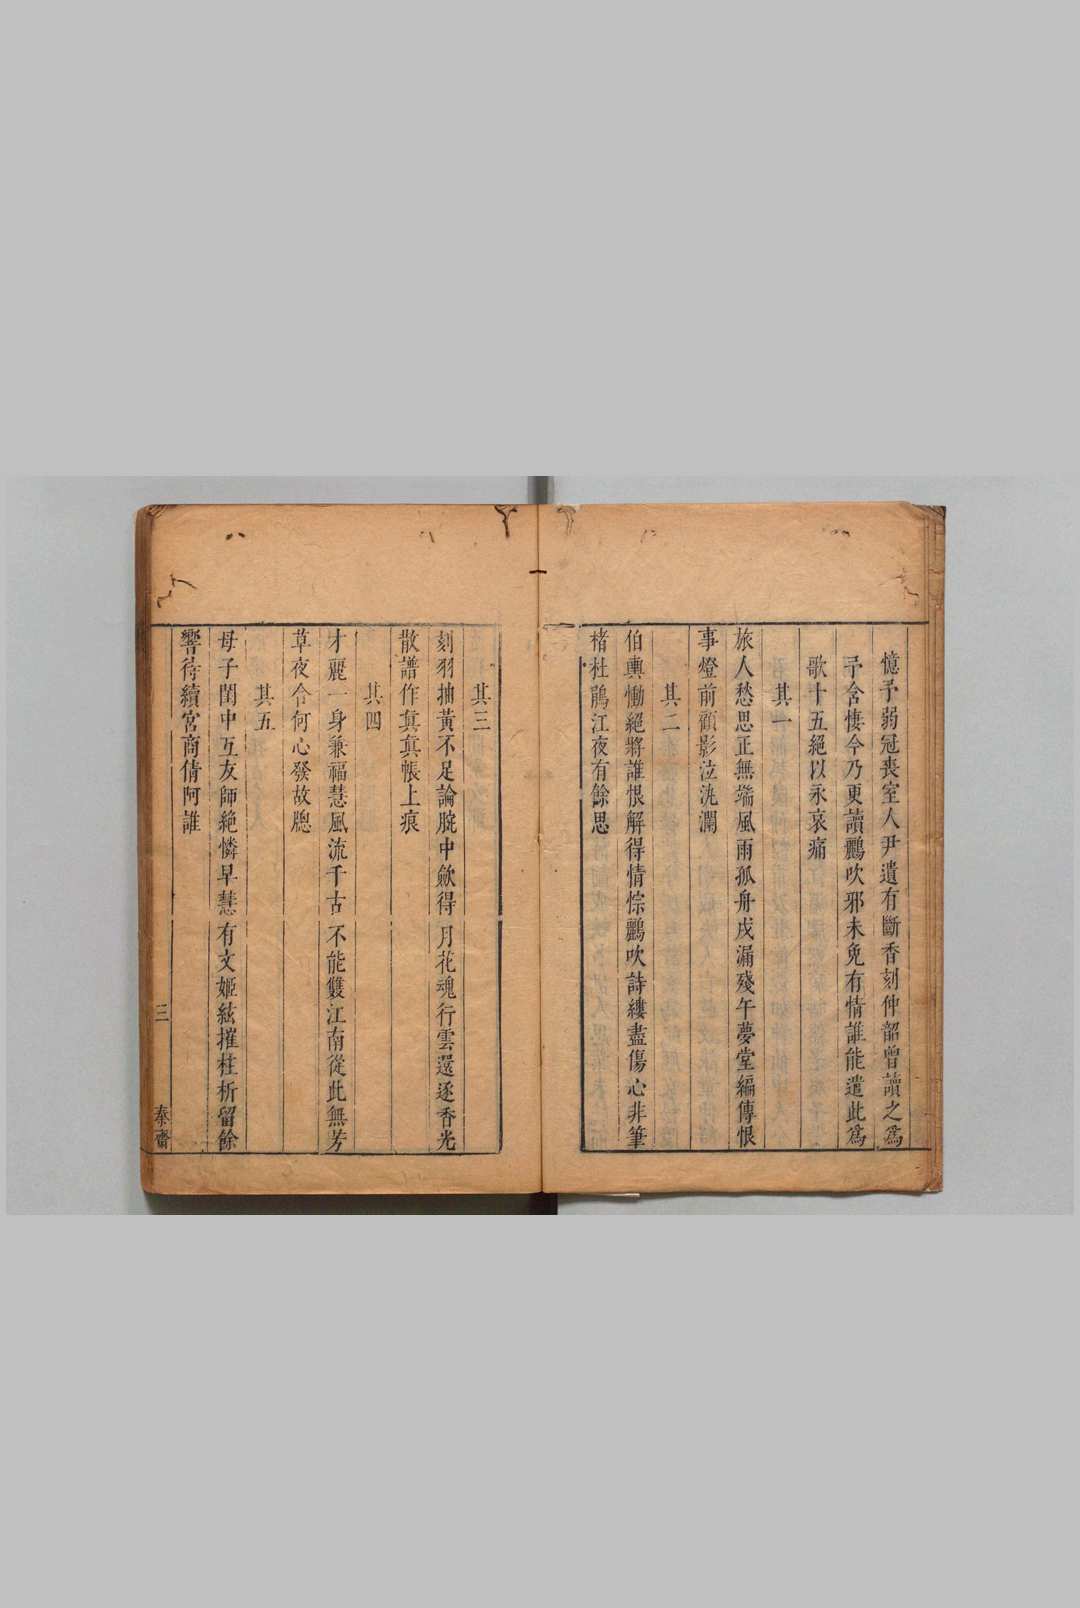 憶予弱冠喪室人尹遺有斷香刻仲韶曾讀之爲
予含悽今乃更讀鸝吹邪未免有情誰能遣此爲
歌十五絕以永哀痛
其一
旅人愁思正無端風雨孤舟戍漏殘午夢堂編傳恨
事燈前顧影泣汍瀾
其二
伯輿慟絕將誰恨解得情悰鸝吹詩縷盡傷心非筆
楮杜鵑江夜有餘思
其三
刻羽抽黃不足論腕中歛得月花魂行雲還逐香光
散譜作眞眞帳上痕
其四
才麗一身兼福慧風流千古不能雙江南從此無芳
草夜合何心發故牎
其五
母子閨中互友師絕憐早慧有文姬絃摧柱析留餘
響待續宮商倩阿誰
三
秦齋